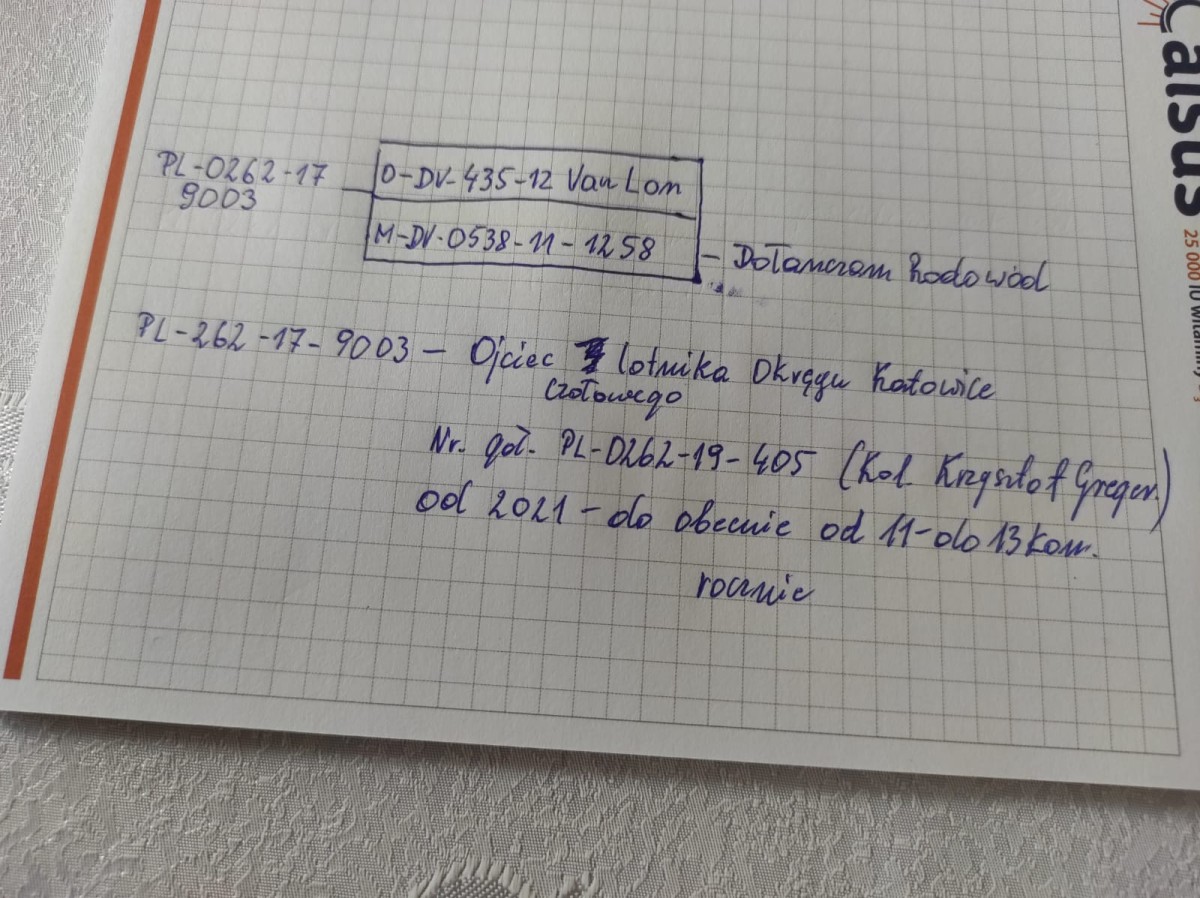 PL-0262-17
9003
O-DV-435-12 Van Lon
M-DV-0538-11-1258
- Dołanczam Rodowód
PL-262-17-9003 - Ojciec lotnika Okręgu Katowice
czołowego
Nr. goł. PL-0262-19-405 (Kol. Krzysztof Greger)
od 2021 - do obecnie od 11-do 13 kon.
rocznie
Calsus
25 000 IU witaminy